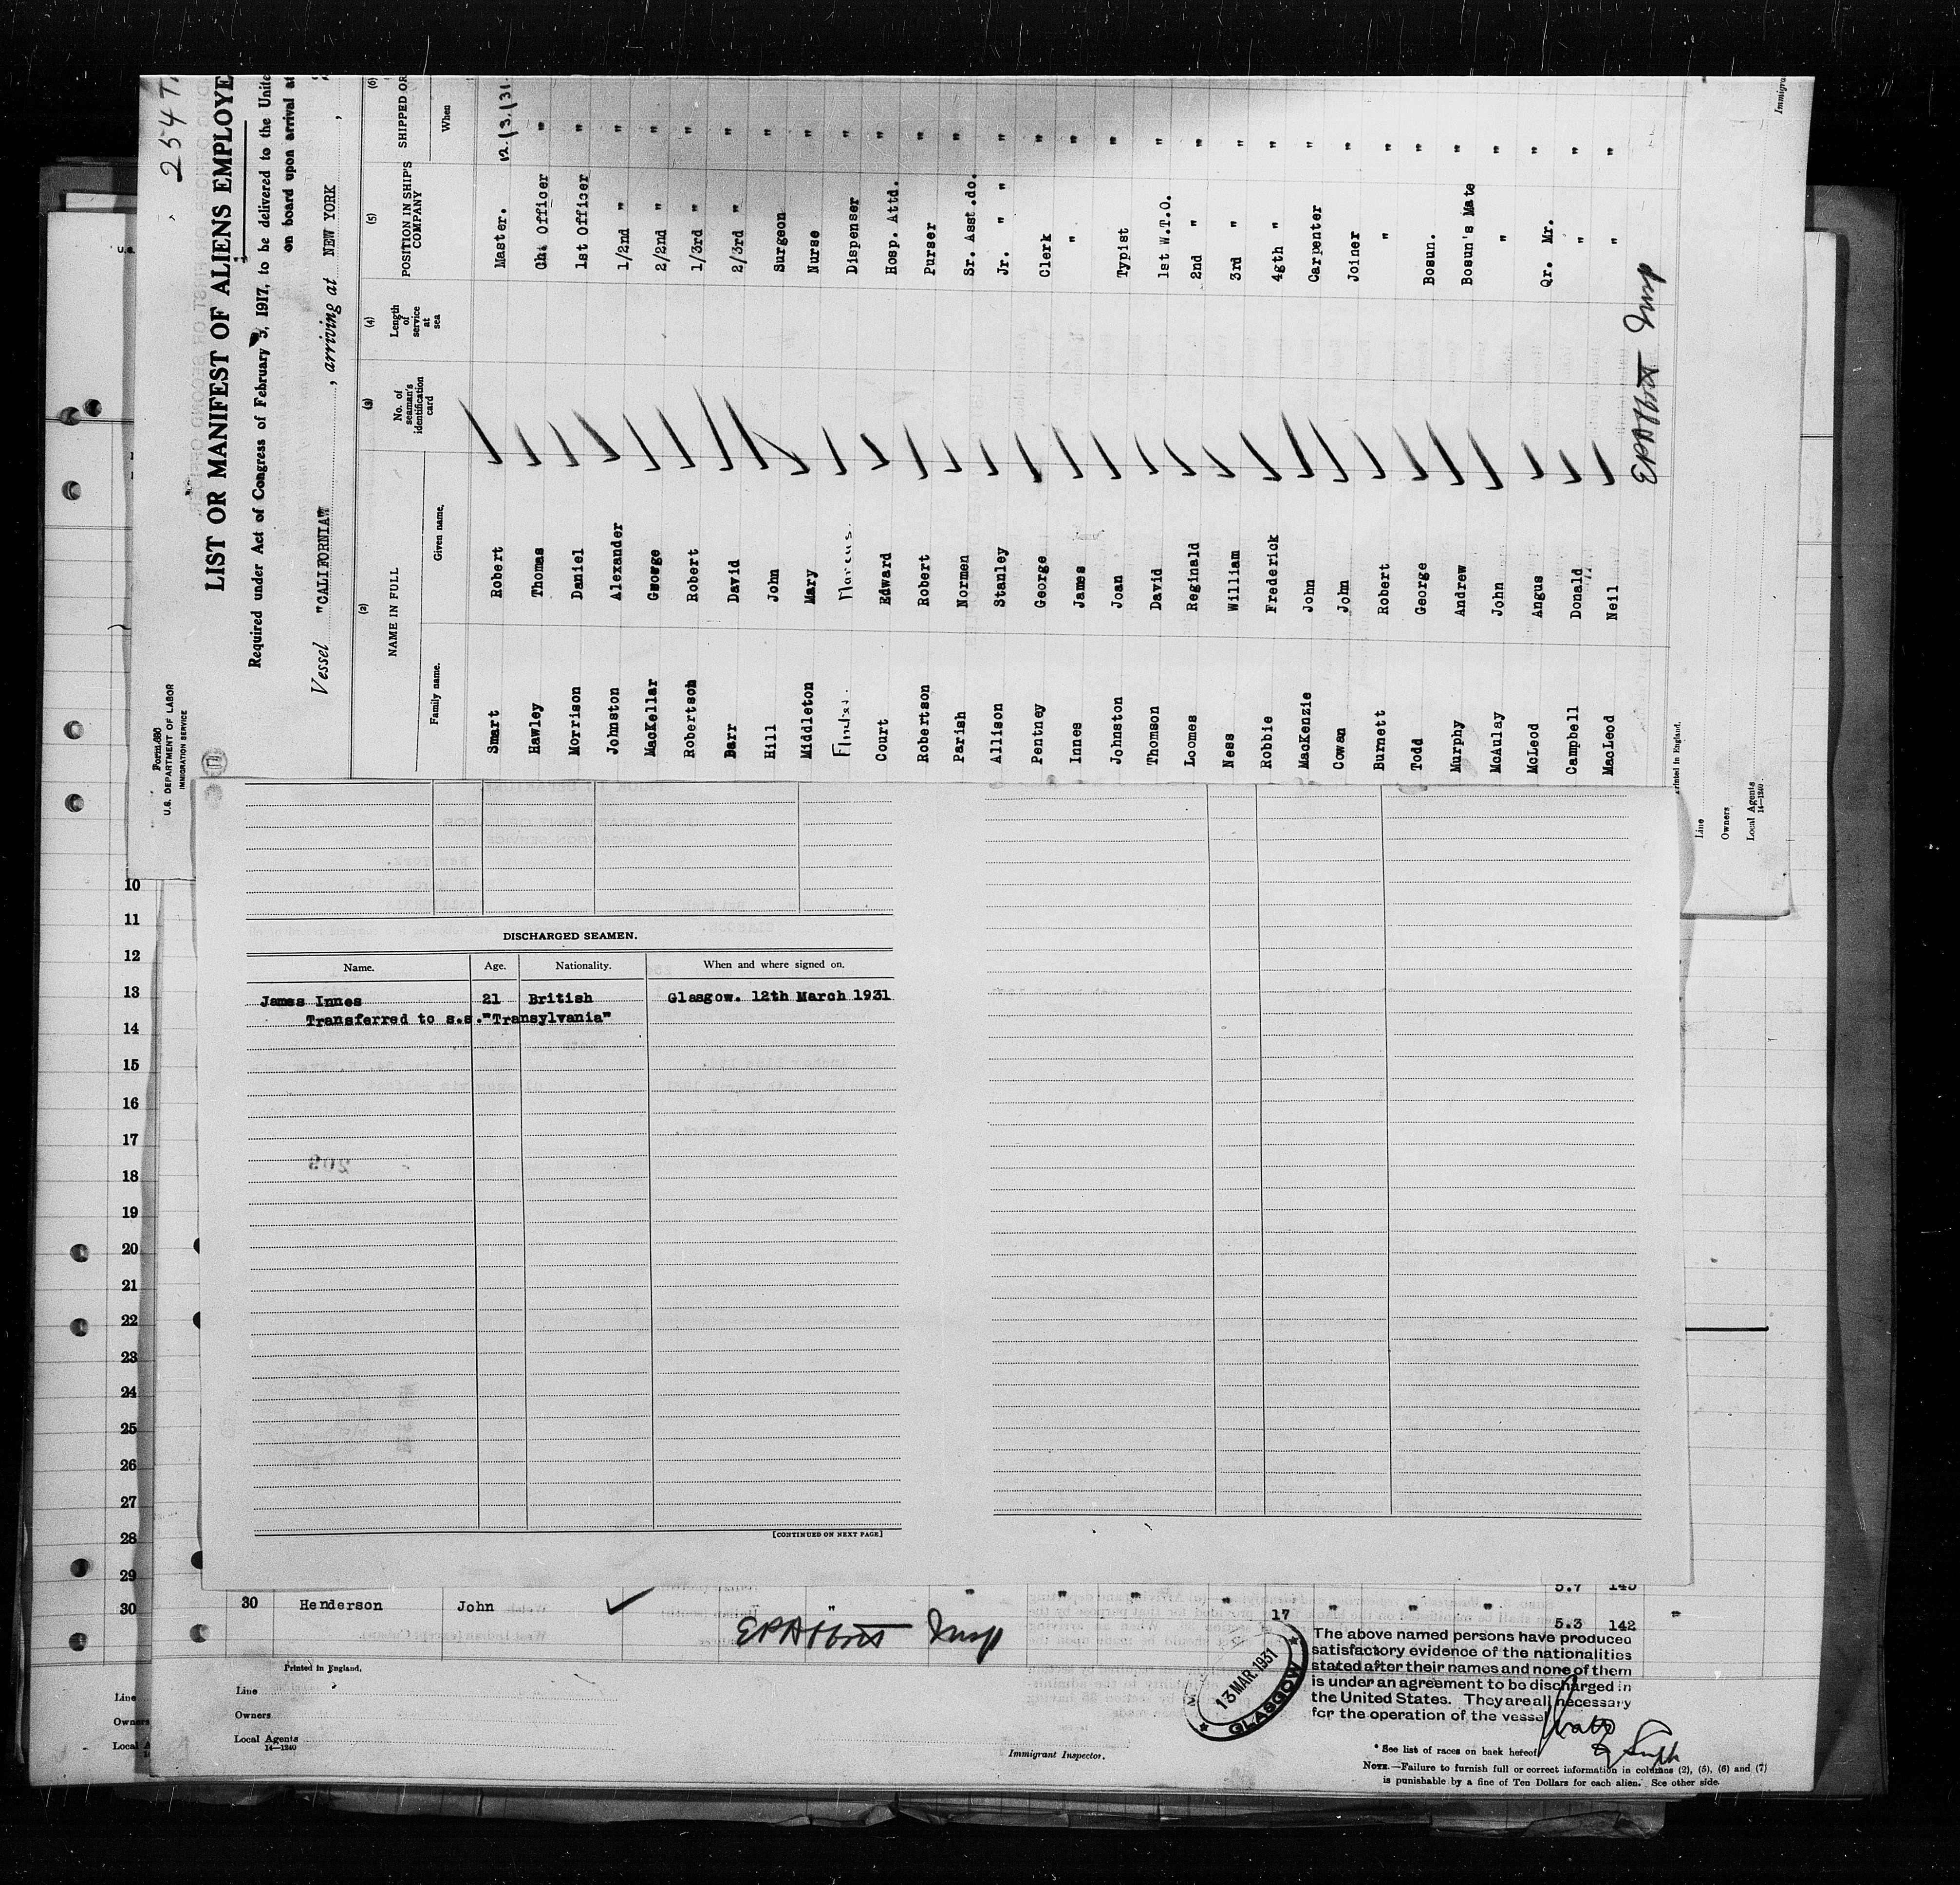 254
Form 680
U.S. DEPARTMENT OF LABOR
IMMIGRATION SERVICE
LIST OR MANIFEST OF ALIENS EMPLOYE
Required under Act of Congress of February 5, 1917, to be delivered to the Unite
on board upon arrival at
Vessel "CALIFORNIA", arriving at NEW YORK,
(2) (3) (4) (5) (6)
NAME IN FULL No. of seaman's identification card Length of service at sea POSITION IN SHIP'S COMPANY SHIPPED OR
Family name. Given name. When
Smart Robert Master. 12.13.131.
Hawley Thomas Ght Officer "
Morrison Daniel 1st Officer "
Johnston Alexander 1/2nd " "
MacKellar George 2/2nd " "
Robertson Robert 1/3rd " "
Barr David 2/3rd " "
Hill John Surgeon "
Middleton Mary Nurse "
Marcus Dispenser "
Court Edward Hosp. Attd. "
Robertson Robert Purser "
Parish Normen Sr. Asst.do. "
Allison Stanley Jr. " " "
Pentney George Clerk "
Innes James " "
Johnston Joan Typist "
Thomson David 1st W.T.O. "
Loomes Reginald 2nd " "
Ness William 3rd " "
Robbie Frederick 4gth " "
MacKenzie John Carpenter "
Cowan John Joiner "
Burnett Robert " "
Todd George Bosun. "
Murphy Andrew Bosun's Mate "
McAulay John " "
McLeod Angus Qr. Mr. "
Campbell Donald " "
MacLeod Neil " "
Printed in England.
Line
Owners
Local Agents
14-1240
Immigra
DISCHARGED SEAMEN.
Name. Age. Nationality. When and where signed on.
James Innes 21 British Glasgow. 12th March 1931
Transferred to s.s."Transylvania"
[CONTINUED ON NEXT PAGE]
10
11
12
13
14
15
16
17
18
19
20
21
22
23
24
25
26
27
28
29
30
5.7 145
30 Henderson John " " " " " 17 " " " " 5.3 142 "
Printed in England.
Line
Owners
Local Agents
14-1240
Line
Owners
Local A
Immigrant Inspector.
13 MAR. 1931
GLASGOW
The above named persons have produced
satisfactory evidence of the nationalities
stated after their names and none of them
is under an agreement to be discharged in
the United States. They are all necessary
for the operation of the vessel
* See list of races on back hereof.
NOTE.—Failure to furnish full or correct information in columns (2), (5), (6) and (7)
is punishable by a fine of Ten Dollars for each alien. See other side.